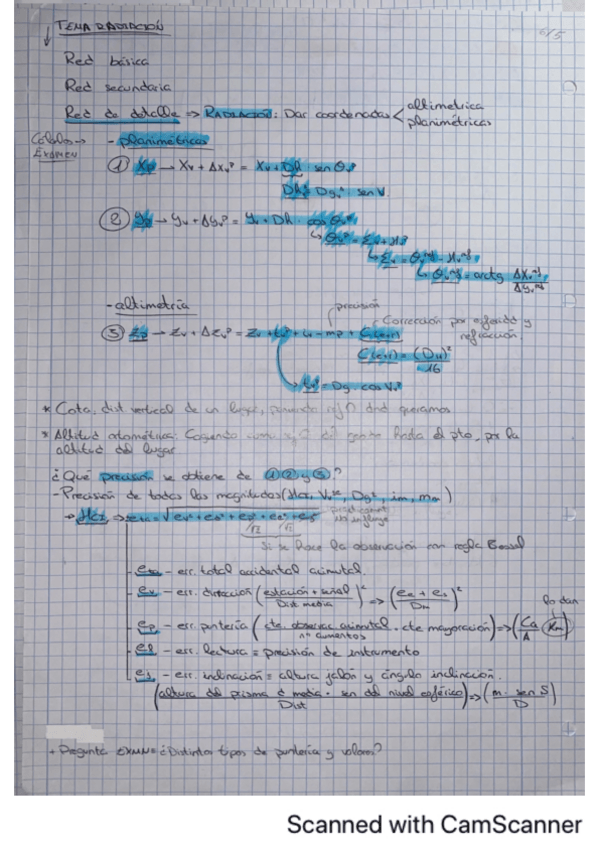 TEMA RADIACIÓN
6/5
Red básica
Red secundaria
Red de detalle ⇒ RADIACIÓN: Dar coordenadas < altimetrica
planimétricas
Cálculos → - planimétricas
EXAMEN
① Xp → Xv + ΔXvᵖ = Xv + Dh · sen θvᵖ
Dh = Dgvᵖ · sen V
② Yp → Yv + ΔYvᵖ = Yv + Dh · cos θvᵖ
θvᵖ = Σv + Hzᵖ
- altimetría
precisión
③ Zp → Zv + ΔZvᵖ = Zv + tvᵖ + iv - mp + C(e+r)
Corrección por esfericidad y
refracción.
t = Dg · cos Vvᵖ
* Cota: dist vertical de un lugar, dnd queramos
* Altitud ortométrica: Cogiendo como hasta el pto, por la
altitud del lugar
¿Qué precisión se obtiene de ① ② y ③?
- Precisión de todas las magnitudes
Si se hace la observación con regla Bessel
- err. total accidental acimutal.
ev - err. dirección (estación + señal / Dist media)² ⇒ (ee + es / Dm)²
lo dan
ep - err. puntería (cte. observac acimutal / nº aumentos · cte mayoración) ⇒ (Ca / A · Km)
el - err. lectura = precisión de instrumento
- err. inclinación = altura jalón y ángulo inclinación.
(altura del prisma ó media · sen del nivel esférico / Dist) ⇒ (m · sen S / D)
+ Pregunta EXMN = ¿Distintos tipos de puntería y valores?
Scanned with CamScanner